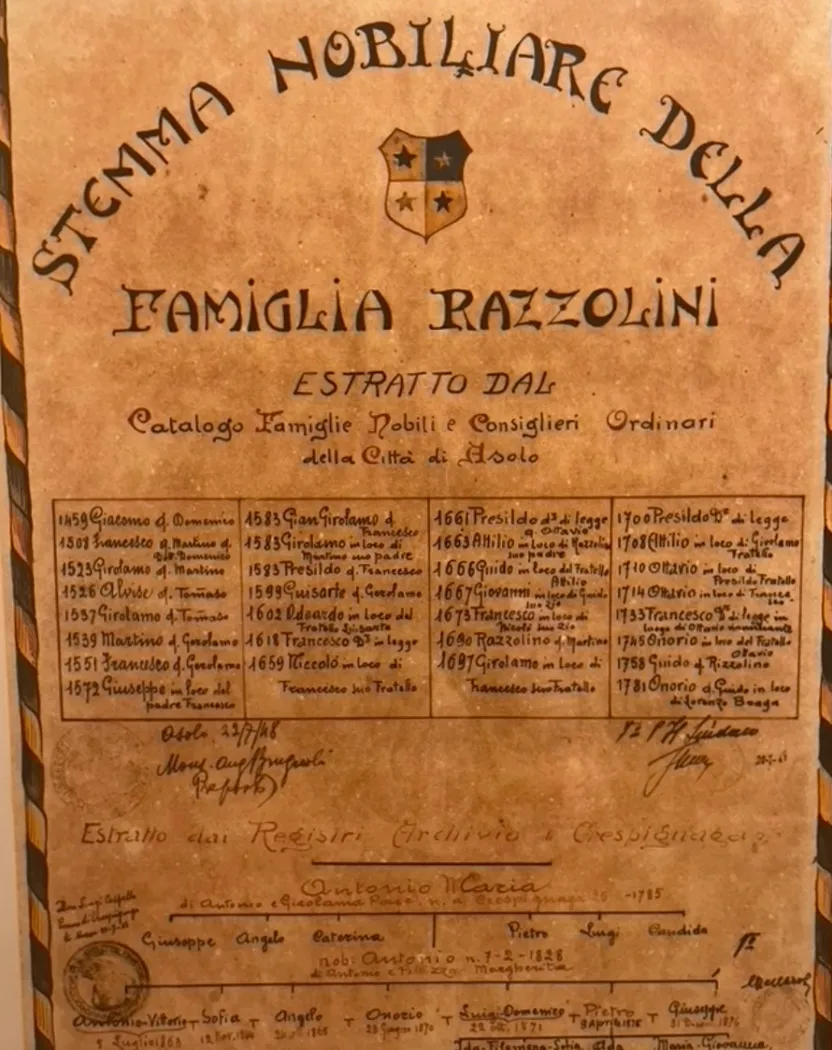 STEMMA NOBILIARE DELLA
FAMIGLIA RAZZOLINI
ESTRATTO DAL
Catalogo Famiglie Nobili e Consiglieri Ordinari
della Città di Asolo
1459 Giacomo q. Domenico
Francesco q. Martino q.
Domenico
1523 Girolamo q. Martino
1526 Alvise q. Tomaso
1537 Girolamo q. Tomaso
1539 Martino q. Gerolamo
1551 Francesco q. Gerolamo
1572 Giuseppe in loco del
padre Francesco
1583 Gian Girolamo q.
Francesco
1583 Girolamo in loco di
Martino suo padre
1583 Presildo q. Francesco
1599 Guisarte q. Gerolamo
1602 Odoardo in loco del
Fratello Guisarte
1618 Francesco Dr in legge
1659 Niccolò in loco di
Francesco suo Fratello
1661 Presildo dr di legge
q. Ottavio
1663 Attilio in loco di Razzolin
suo padre
1666 Guido in loco del Fratello
Attilio
1667 Giovanni in loco di Guido
suo Zio
1673 Francesco in loco di
Nicolò suo Zio
1690 Razzolino q. Martino
1697 Girolamo in loco di
Francesco suo Fratello
1700 Presildo Dr di legge
1708 Attilio in loco di Girolamo
Fratello
1710 Ottavio in loco di
Presildo Fratello
1714 Ottavio in loco di
1733 Francesco Dr di legge in
luogo di Ottavio
1745 Onorio in loco del Fratello
Ottavio
1758 Guido q. Rizzolino
1781 Onorio q. Guido in loco
di Lorenzo Braga
Asolo, 22/7/48
Mons. Ang. Brugnoli
Il Sindaco
Estratto dai Registri Archivio Crespignaga
Antonio Maria
di Antonio e Girolama n. a Crespignaga -1785
Giuseppe Angelo Caterina Pietro Luigi Candida
nob. Antonio n. 7-2-1828
di Antonio e Margherita
Antonio-Vittorio Sofia Angelo Onorio Luigi-Domenico Pietro Giuseppe
5 Luglio 1863 28 Giugno 1870 1871 8 Aprile
Ida-Filomena-Sofia Alda Maria-Giovanna,